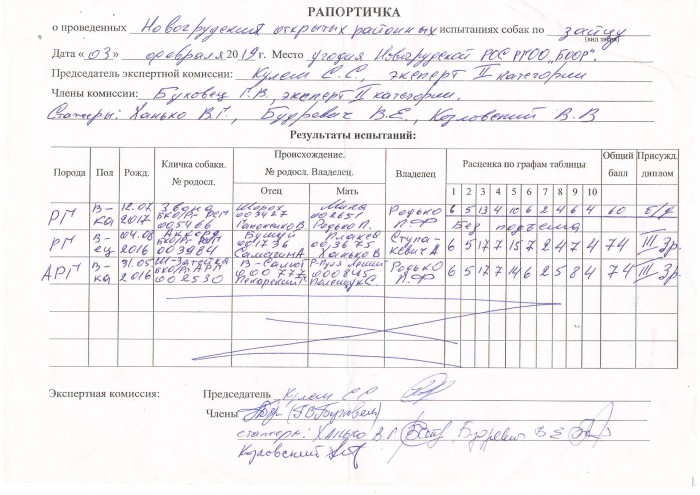 РАПОРТИЧКА
о проведенных Новогрудских открытых районных испытаниях собак по зайцу
(вид зверя)
Дата «03» февраля 2019 г. Место угодия Новогрудской РОС РГОО „БООР".
Председатель экспертной комиссии: Кулеш С.С., эксперт II категории
Члены комиссии: Буховец Г.В., эксперт II категории.
Стажеры: Ханько В.Г., Будревич В.Е., Козловский В.В
Результаты испытаний:
Порода Пол Рожд. Кличка собаки. № родосл. Происхождение. № родосл. Владелец. Отец Мать Владелец Расценка по графам таблицы 1 2 3 4 5 6 7 8 9 10 Общий балл Присужд. диплом
РГ В-ка 12.07 2017 005466 003427 002651 Родько 6 5 13 4 10 6 2 4 6 4 60 б/д
Без подъема
РГ В-ец 04.06 2016 Аккорд 003984 001736 003675 Ханько В Ступакевич А 6 5 17 7 15 7 2 4 7 4 74 III Зр.
АРГ В-ка 31.05 2016 002530 В-Салют 000777 000845 Полещук С. Родько 6 5 17 7 14 6 2 5 8 4 74 III Зр.
Экспертная комиссия: Председатель Кулеш С С
Члены
стажеры: Ханько В.Г. Будревич В Е
Козловский